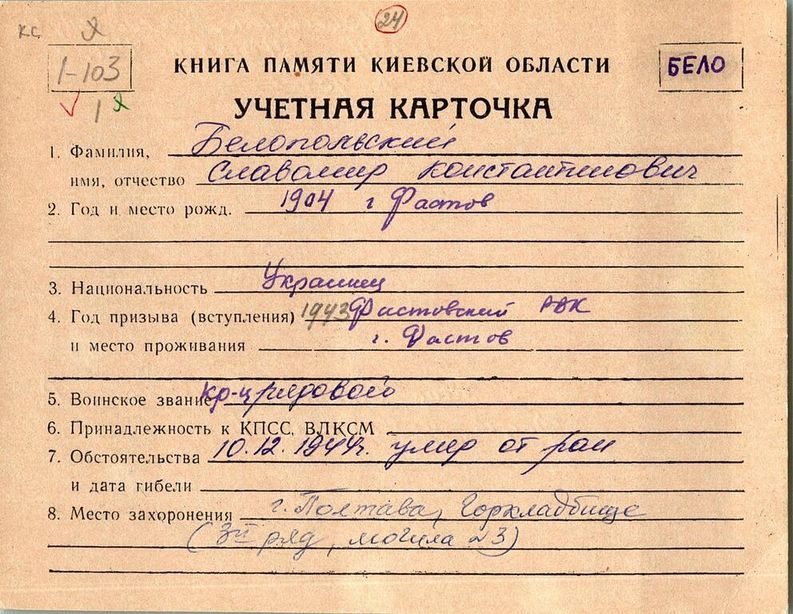 КС
24
1-103
1
КНИГА ПАМЯТИ КИЕВСКОЙ ОБЛАСТИ
БЕЛО
УЧЕТНАЯ КАРТОЧКА
1. Фамилия, Белопольский
имя, отчество Славомир Константинович
2. Год и место рожд. 1904 г Фастов
3. Национальность Украинец
4. Год призыва (вступления) 1943 Фастовский РВК
и место проживания г. Фастов
5. Воинское звание кр-ц рядовой
6. Принадлежность к КПСС, ВЛКСМ
7. Обстоятельства 10.12.1944г. умер от ран
и дата гибели
8. Место захоронения г. Полтава, Горкладбище
ряд, могила 23)